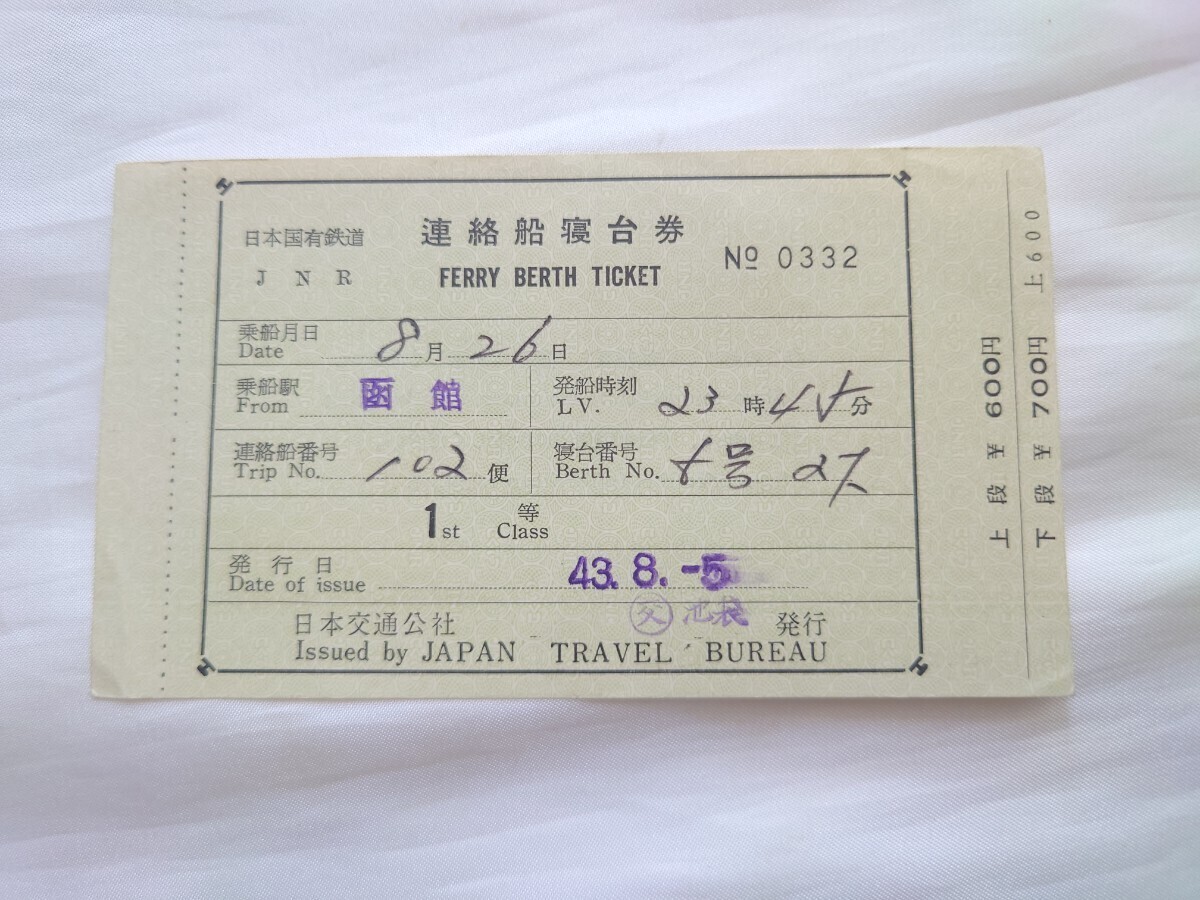 日本国有鉄道 連絡船寝台券
J N R FERRY BERTH TICKET № 0332
乗船月日 8月26日
Date
乗船駅 函館 発船時刻 23時45分
From LV.
連絡船番号 102便 寝台番号 8号
Trip No. Berth No.
1st 等
Class
発行日 43.8.-5
Date of issue
日本交通公社 交 池袋 発行
Issued by JAPAN TRAVEL BUREAU
上段 ¥ 600円
下段 ¥ 700円 上600